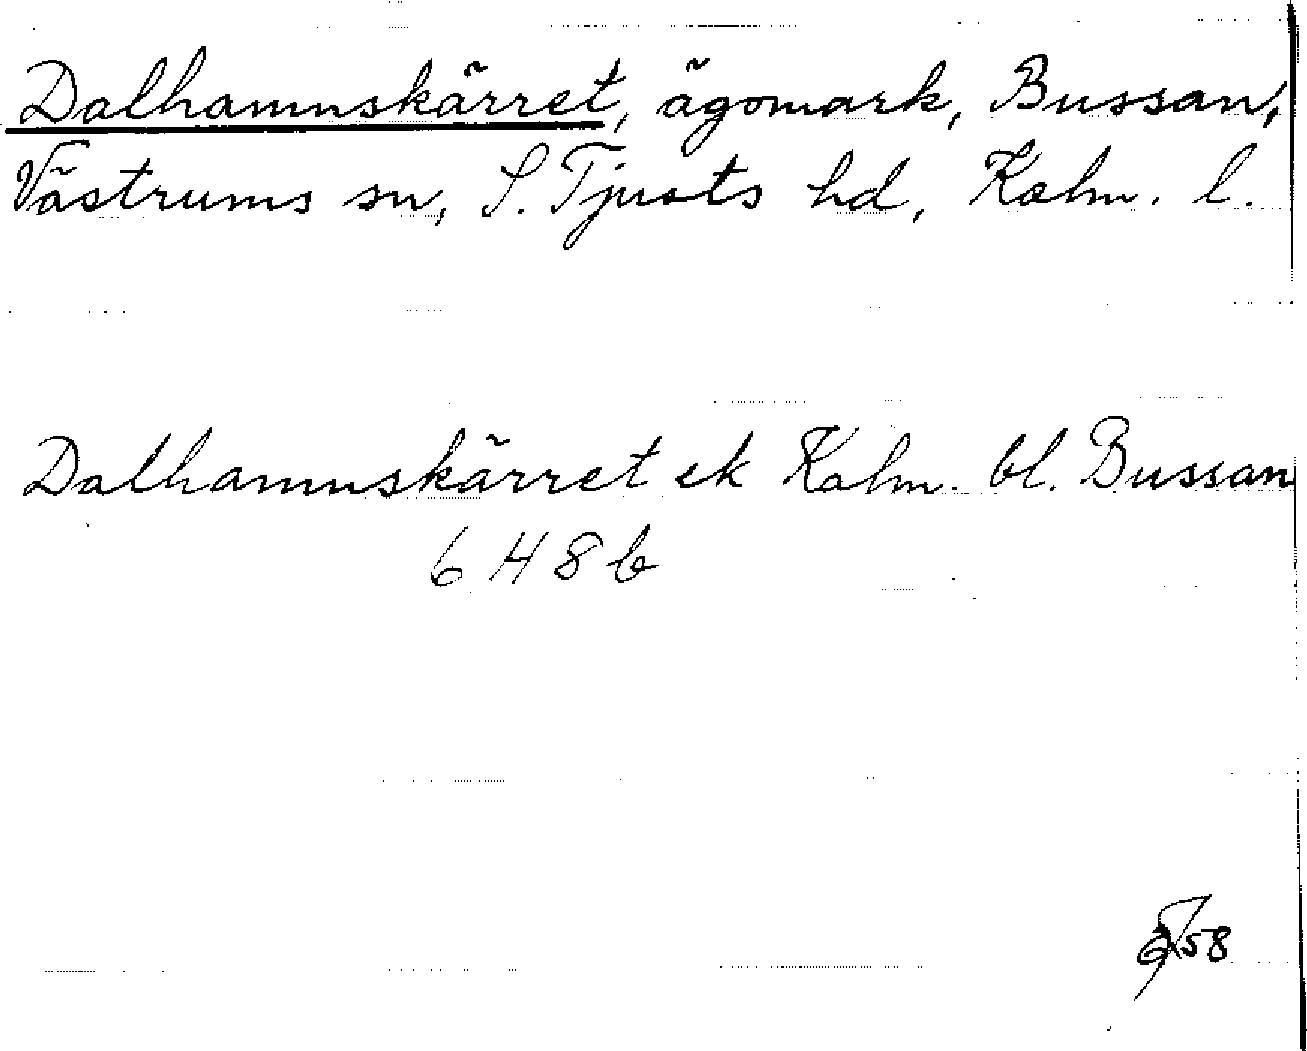 Dalhamnskärret, ägomark, Bussan,
Västrums sn, S. Tjusts hd, Kalm. l.
Dalhamnskärret ek Kalm. bl. Bussan
6 H 8 b
58